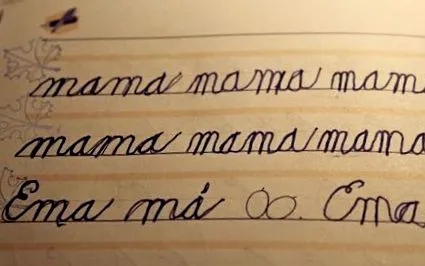 mama mama mam
mama mama mama
Ema má OO. Ema